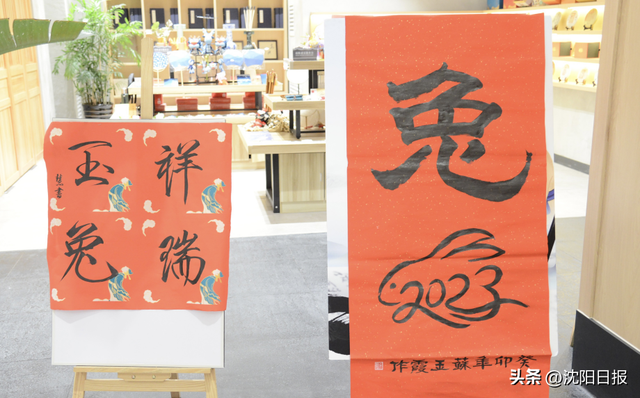 祥瑞
玉兔
兔
2023
癸卯年蘇玉霞作
头条 @沈阳日报